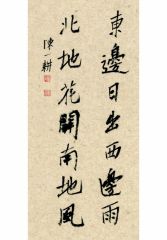 東邊日出西邊雨
北地花開南地風
陳一耕